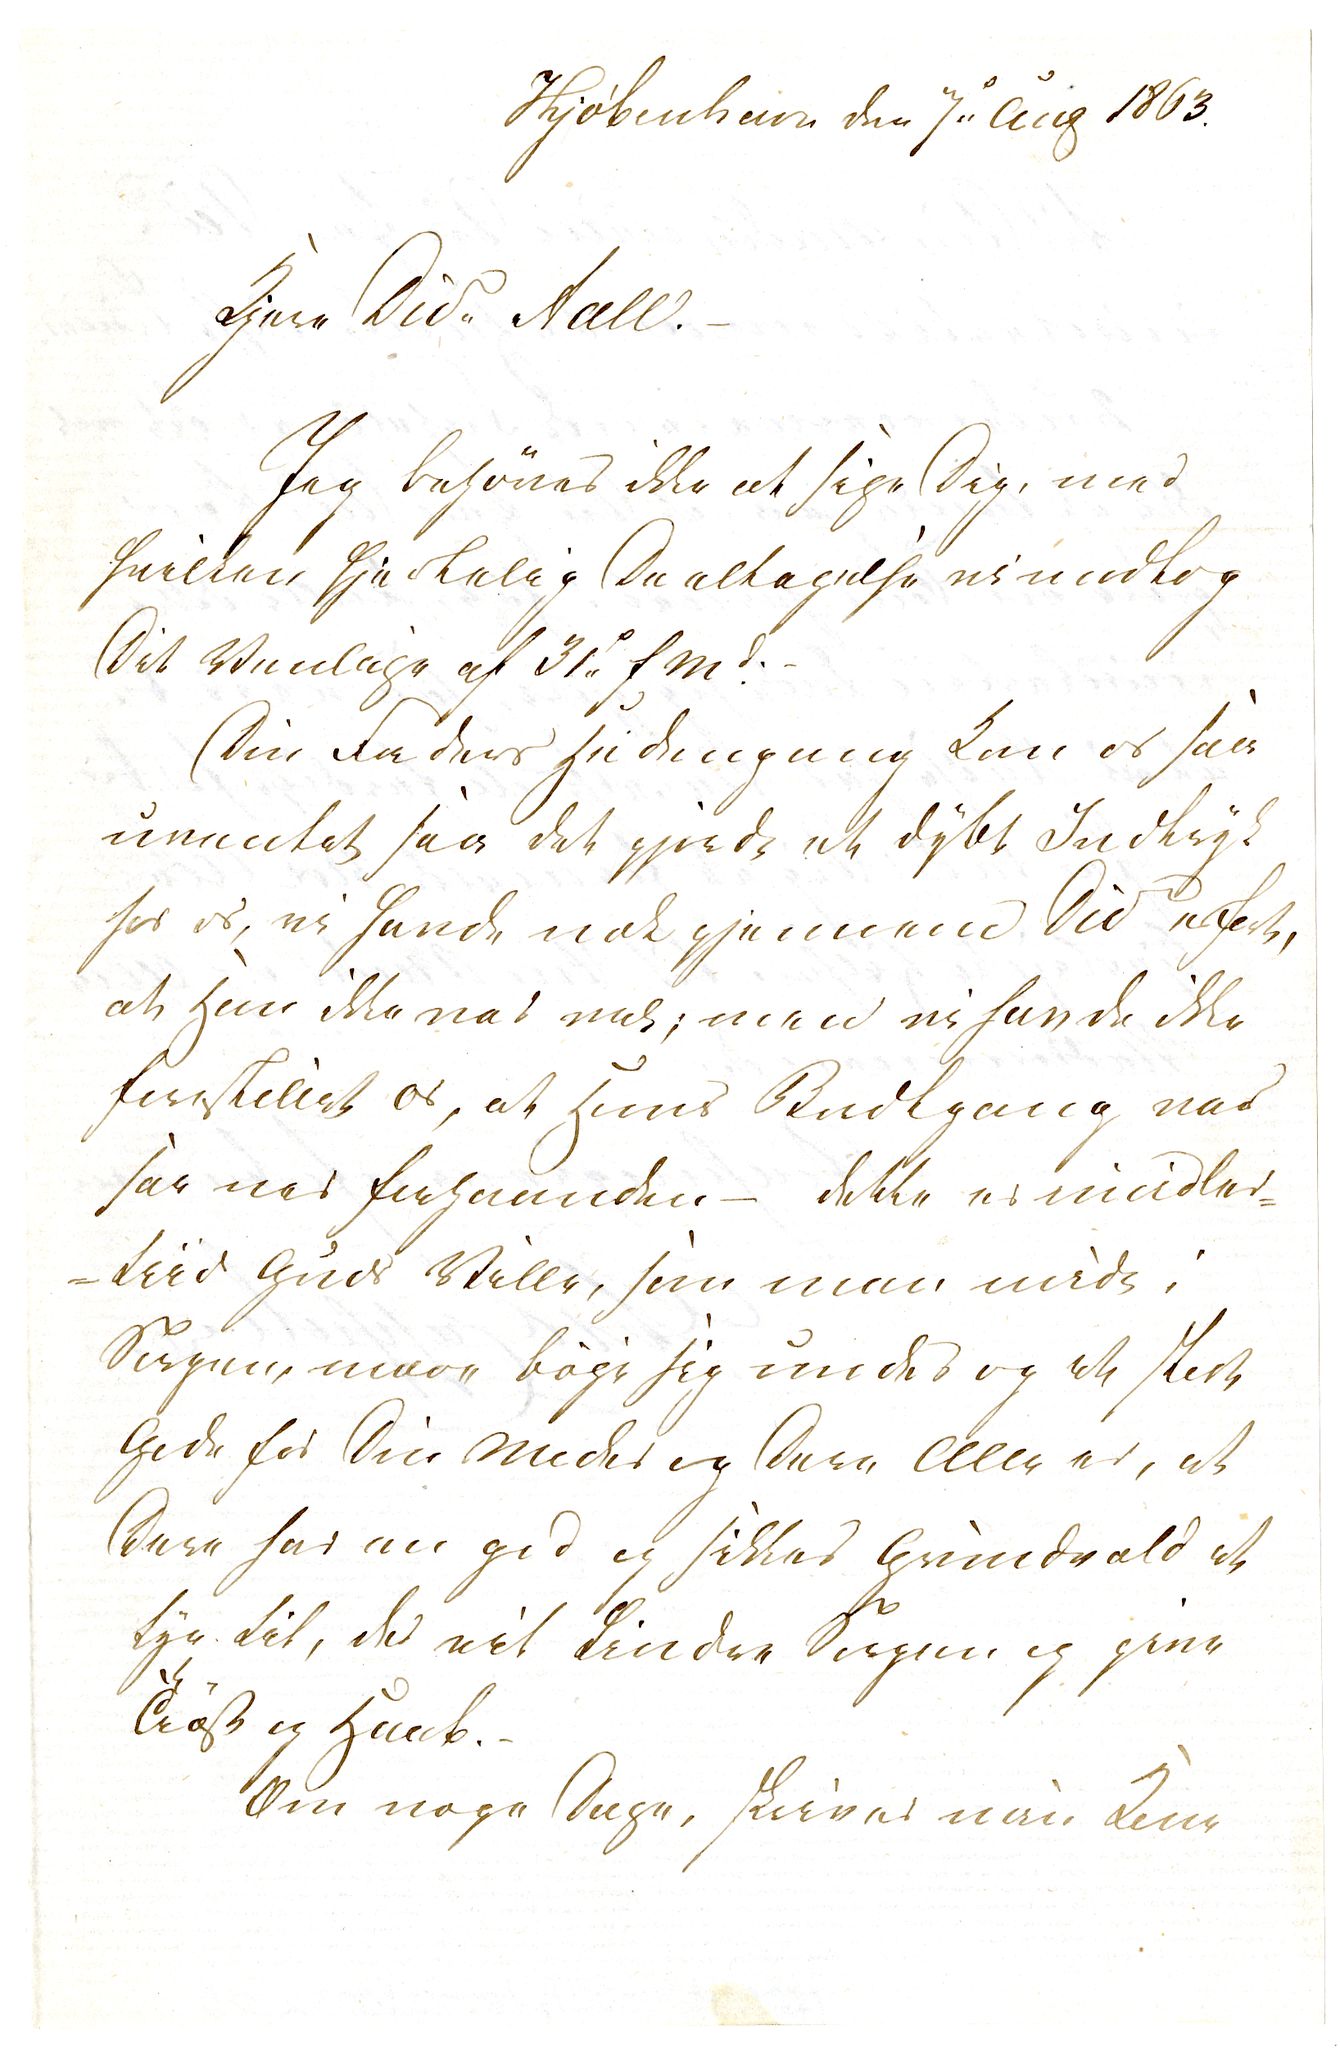 Kjöbenhavn den 7de Aug 1863.
Kjere Didr. Aall. –
Jeg behöver ikke at sige Dig, med
hvilken hjertelig Deeltagelse vi modtog
Dit Venlige af 31te f Md. –
Din Faders Hedengang kom os saa
uventet saa det gjorde et dybt Indtryk
hos os, vi havde nok gjennem Did erfart,
at Han ikke var vel; men vi havde ikke
forestillet os, at Hans Bortgang var
saa nær forhaanden – dette er imidler=
=tiid Guds Villie, som man midt i
Sorgen, maae böje sig under og et stort
Gode for Din Moder og Dere Alle er, at
Dere har en god og sikker Grundvold at
tye til, der vil lindre Sorgen og give
Tröst og Haab. –
Om nogle Dage, skriver min Kone